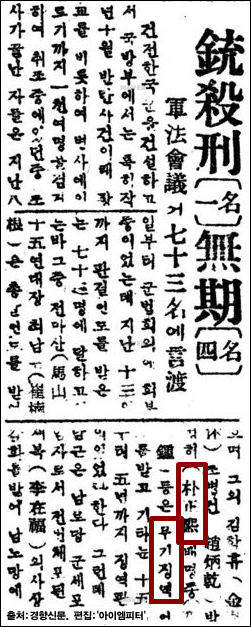 銃殺刑[一名]無期[四名]
軍法會議서 七十三名에言渡
건전한국군을건설하고
서 국방부에서는 특히작
년十월 반란사건이때 장
교를 비롯하여 병사에이
르기까지 一천여명을검거
하여 취조중에있던중조
사가끝난 자들은 지난八
일부터 군법회의에 회부
중이었는데 지난 十三
까지 판결언도를 받은
는 七十三명에 달하고
는바그중 전마산(馬山
十五연대장 최남 (崔楠
根)은 총살언도를 받
으며 그외 김학 (金
林) 조병건(趙炳乾)박
정희(朴正熙) 배명종
鍾)등은 무기징역 언
도를받고 기타는 十五
부터 五년까지 징역판
이있었다한다 그런데
남근은 남로당 군세포
임자로서 전번체포된
재복(李在福)의사상
감화를받어 남노당에
출처: 경향신문, 편집: '아이엠피터'